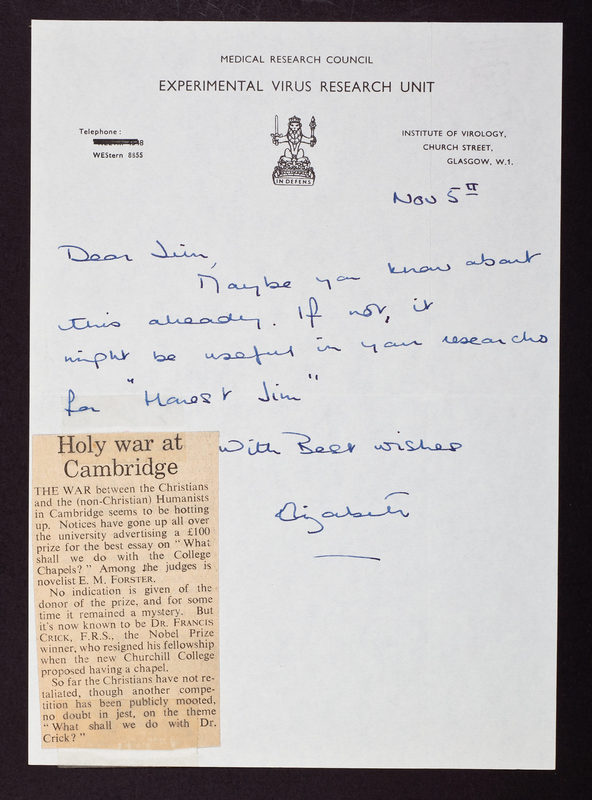 MEDICAL RESEARCH COUNCIL
EXPERIMENTAL VIRUS RESEARCH UNIT
Telephone:
WEStern 8855
IN DEFENS
INSTITUTE OF VIROLOGY,
CHURCH STREET,
GLASGOW, W.1.
Nov 5th
Dear Jim,
Maybe you know about
this already. If not, it
might be useful in your researches
for "Honest Jim"
With Best wishes
Elizabeth
Holy war at
Cambridge
THE WAR between the Christians
and the (non-Christian) Humanists
in Cambridge seems to be hotting
up. Notices have gone up all over
the university advertising a £100
prize for the best essay on "What
shall we do with the College
Chapels?" Among the judges is
novelist E. M. FORSTER.
No indication is given of the
donor of the prize, and for some
time it remained a mystery. But
it's now known to be DR. FRANCIS
CRICK, F.R.S., the Nobel Prize
winner, who resigned his fellowship
when the new Churchill College
proposed having a chapel.
So far the Christians have not re-
taliated, though another compe-
tition has been publicly mooted,
no doubt in jest, on the theme
"What shall we do with Dr.
Crick?"